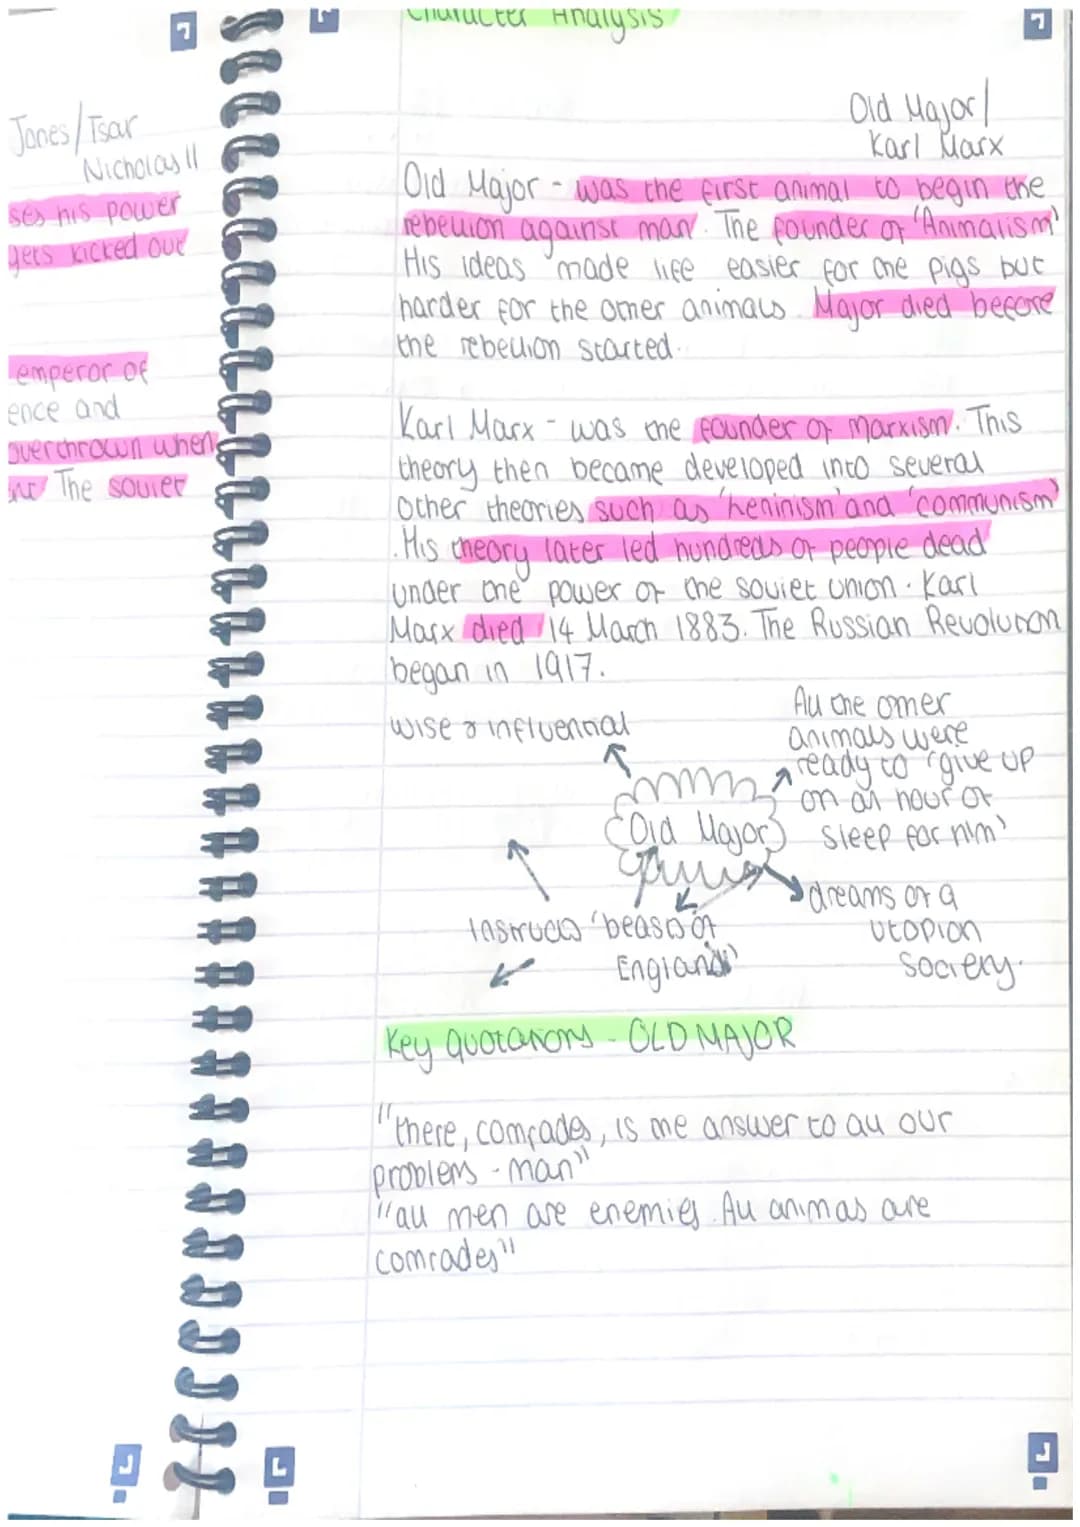 Jones/Tsar
Nicholas II
ses his power
gets kicked out
emperor of
ence and
overthrown when
The soviet
Character Analysis
Old Major/
Karl Marx
Old Major - was the first animal to begin the
rebellion against man. The founder of 'Animalism'
His ideas made life easier for the pigs but
harder for the other animals. Major died before
the rebellion started.
Karl Marx - was the founder of Marxism. This
theory then became developed into several
other theories such as 'heninism' and 'communism'
.His theory later led hundreds of people dead
under the power of the soviet union. Karl
Marx died 14 March 1883. The Russian Revolution
began in 1917.
wise & influential
All the other
animals were
ready to 'give up
on an hour of
sleep for him'
Old Major
dreams of a
utopion
society.
Instructs 'beasts of
England'
Key quotations - OLD MAJOR
"there, comrades, is the answer to all our
problems - man"
"all men are enemies. All animas are
comrades"